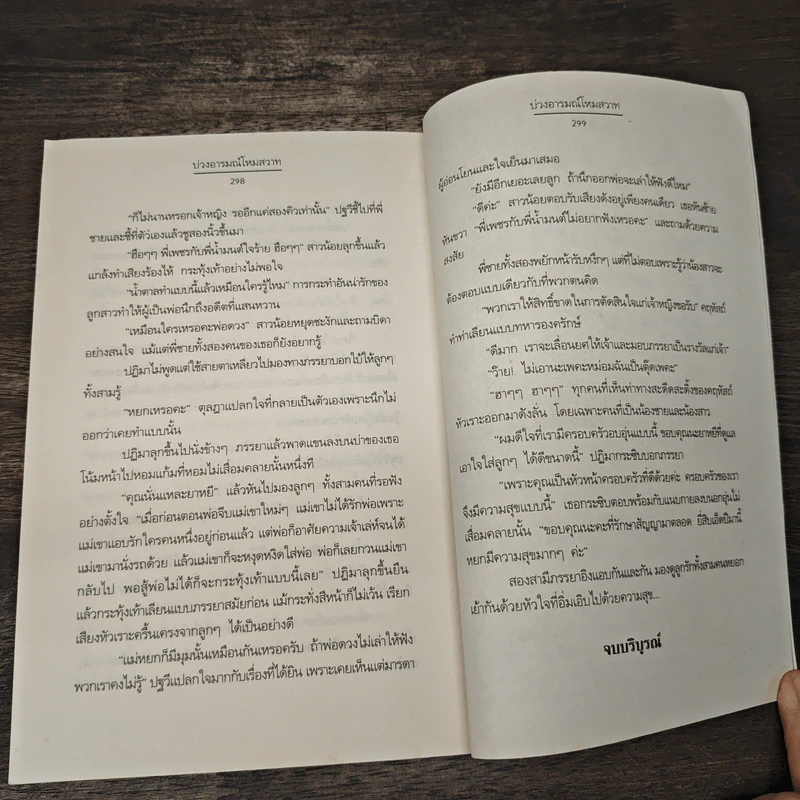 บ่วงอารมณ์โหมสวาท
298
"ก็ไม่นานหรอกเจ้าหญิง รออีกแค่สองคิวเท่านั้น" ปฐวีชี้ไปที่พี่
ชายและชี้ที่ตัวเองแล้วชูสองนิ้วขึ้นมา
"ฮือๆๆ พี่เพชรกับพี่น้ำมนต์ใจร้าย ฮือๆๆ" สาวน้อยลุกขึ้นแล้ว
แกล้งทำเสียงร้องไห้ กระทุ้งเท้าอย่างไม่พอใจ
"น้ำตาลทำแบบนี้แล้วเหมือนใครรู้ไหม" การกระทำอันน่ารักของ
ลูกสาวทำให้ผู้เป็นพ่อนึกถึงอดีตที่แสนหวาน
"เหมือนใครเหรอคะพ่อดวง" สาวน้อยหยุดชะงักและถามบิดา
อย่างสนใจ แม้แต่พี่ชายทั้งสองคนของเธอก็ยังอยากรู้
ปฏิมาไม่พูดแต่ใช้สายตาเหลียวไปมองทางภรรยาบอกใบ้ให้ลูกๆ
ทั้งสามรู้
"หยกเหรอคะ" ตุลฎาแปลกใจที่กลายเป็นตัวเองเพราะนึกไม่
ออกว่าเคยทำแบบนั้น
ปฏิมาลุกขึ้นไปนั่งข้างๆ ภรรยาแล้วพาดแขนลงบนบ่าของเธอ
โน้มหน้าไปหอมแก้มที่หอมไม่เสื่อมคลายนั้นหนึ่งที
"คุณนั่นแหละยาหยี" แล้วหันไปมองลูกๆ ทั้งสามคนที่รอฟัง
อย่างตั้งใจ "เมื่อก่อนตอนพ่อจีบแม่เขาใหม่ๆ แม่เขาไม่ได้รักพ่อเพราะ
แม่เขาแอบรักใครคนหนึ่งอยู่ก่อนแล้ว แต่พ่อก็อาศัยความเจ้าเล่ห์จนได้
แม่เขามานั่งรถด้วย แล้วแม่เขาก็จะหงุดหงิดใส่พ่อ พ่อก็เลยกวนแม่เขา
กลับไป พอสู้พ่อไม่ได้ก็จะกระทุ้งเท้าแบบนี้เลย" ปฏิมาลุกขึ้นยืน
แล้วกระทุ้งเท้าเลียนแบบภรรยาสมัยก่อน แม้กระทั่งสีหน้าก็ไม่เว้น เรียก
เสียงหัวเราะครื้นเครงจากลูกๆ ได้เป็นอย่างดี
"แม่หยกก็มีมุมนั้นเหมือนกันเหรอครับ ถ้าพ่อดวงไม่เล่าให้ฟัง
พวกเราคงไม่รู้" ปฐวีแปลกใจมากกับเรื่องที่ได้ยิน เพราะเคยเห็นแต่มารดา
บ่วงอารมณ์โหมสวาท
299
ผู้อ่อนโยนและใจเย็นมาเสมอ
"ยังมีอีกเยอะเลยลูก ถ้านึกออกพ่อจะเล่าให้ฟังดีไหม"
"ดีค่ะ" สาวน้อยตอบรับเสียงดังอยู่เพียงคนเดียว เธอหันซ้าย
หันขวา "พี่เพชรกับพี่น้ำมนต์ไม่อยากฟังเหรอคะ" และถามด้วยความ
สงสัย
พี่ชายทั้งสองพยักหน้ารับหงึกๆ แต่ที่ไม่ตอบเพราะรู้ว่าน้องสาวจะ
ต้องตอบแบบเดียวกับที่พวกตนคิด
"พวกเราให้สิทธิ์ขาดในการตัดสินใจแก่เจ้าหญิงขอรับ" คฤหัสถ์
ทำท่าเลียนแบบทหารองครักษ์
"ดีมาก เราจะเลื่อนยศให้เจ้าและมอบภรรยาเป็นรางวัลแก่เจ้า"
"ว้าย! ไม่เอานะเพคะหม่อมฉันเป็นตุ๊ดเพคะ"
"ฮาๆๆ ฮาๆๆ" ทุกคนที่เห็นท่าทางสะดีดสะดิ้งของคฤหัสถ์
หัวเราะออกมาดังลั่น โดยเฉพาะคนที่เป็นน้องชายและน้องสาว
"ผมดีใจที่เรามีครอบครัวอบอุ่นแบบนี้ ขอบคุณนะยาหยีที่ดูแล
เอาใจใส่ลูกๆ ได้ดีขนาดนี้" ปฏิมากระซิบบอกภรรยา
"เพราะคุณเป็นหัวหน้าครอบครัวที่ดีด้วยค่ะ ครอบครัวของเรา
จึงมีความสุขแบบนี้" เธอกระซิบตอบพร้อมกับแนบกายลงบนอกอุ่นไม่
เสื่อมคลายนั้น "ขอบคุณนะคะที่รักษาสัญญามาตลอด ยี่สิบเอ็ดปีมานี้
หยกมีความสุขมากๆ ค่ะ"
สองสามีภรรยาอิงแอบกันและกัน มองดูลูกรักทั้งสามคนหยอก
เย้ากันด้วยหัวใจที่อิ่มเอิบไปด้วยความสุข...
จบบริบูรณ์